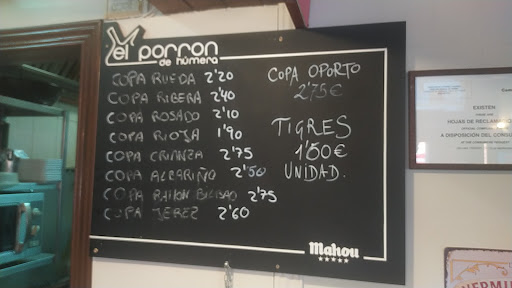 el porron
de húmera
COPA RUEDA 2'20
COPA RIBERA 2'40
COPA ROSADO 2'10
COPA RIOJA 1'90
COPA CRIANZA 2'75
COPA ALBARIÑO 2'50
COPA RAMON BILBAO 2'75
COPA JEREZ 2'60
COPA OPORTO
2'75€
TIGRES
1'50€
UNIDAD.
Mahou
EXISTEN
HOJAS DE RECLAMACIO
A DISPOSICIÓN DEL CONSU